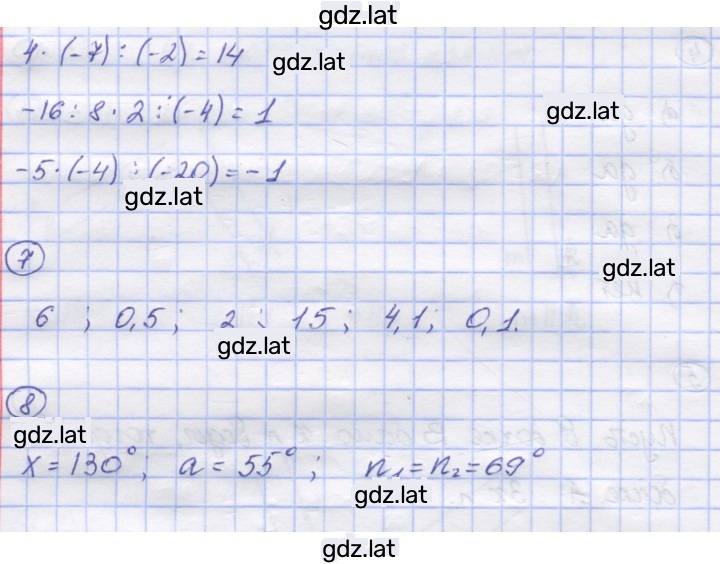 gdz.lat
4 · (-7) : (-2) = 14
gdz.lat
-16 : 8 · 2 : (-4) = 1
gdz.lat
-5 · (-4) : (-20) = -1
gdz.lat
7
gdz.lat
6 ; 0,5 ; 2 ; 15 ; 4,1 ; 0,1.
gdz.lat
8
gdz.lat
x = 130° ; a = 55° ; n₁ = n₂ = 69°
gdz.lat
gdz.lat